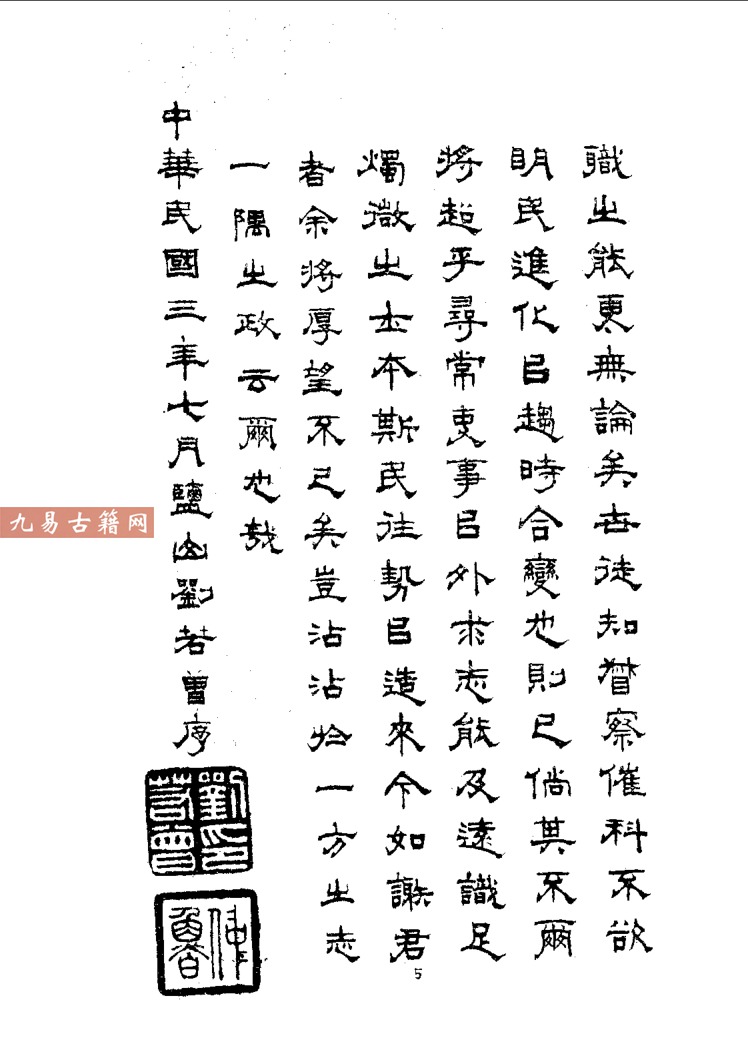 職之能更無論矣世徒知督察催科不欲
明民進化㠯趨時合變也則已倘其不爾
將超乎尋常吏事㠯外求志能及遠識足
燭微之士本斯民往勢㠯造來今如謝君
者余將厚望不已矣豈沾沾於一方之志
一隅之政云爾也哉
中華民國三年七月鹽山劉若曾序
劉印若曾
仲魯
5
九易古籍网